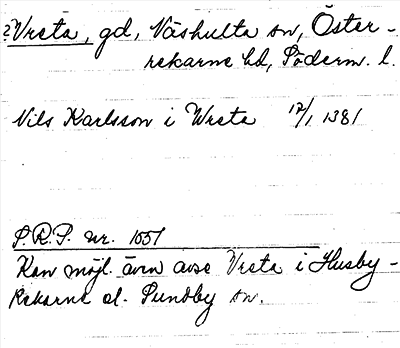 ?Vreta, gd, Näshulta sn, Öster-
rekarne hd, Söderm. l.
Nils Karlsson i Wreta 17/1 1381
S.R.P. nr. 1551
Kan möjl. även avse Vreta i Husby-
Rekarne el. Sundby sn.